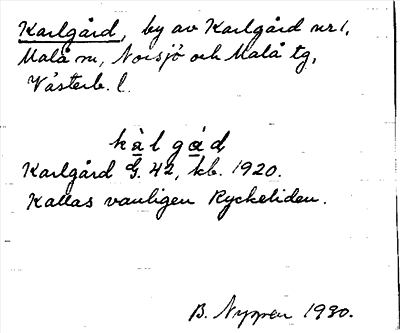 Karlgård, by av Karlgård nr 1,
Malå sn, Norsjö och Malå tg,
Västerb. l.
kàlgåd,
Karlgård G. 42, kb. 1920.
Kallas vanligen Ryckeliden.
B. Nyman 1930.